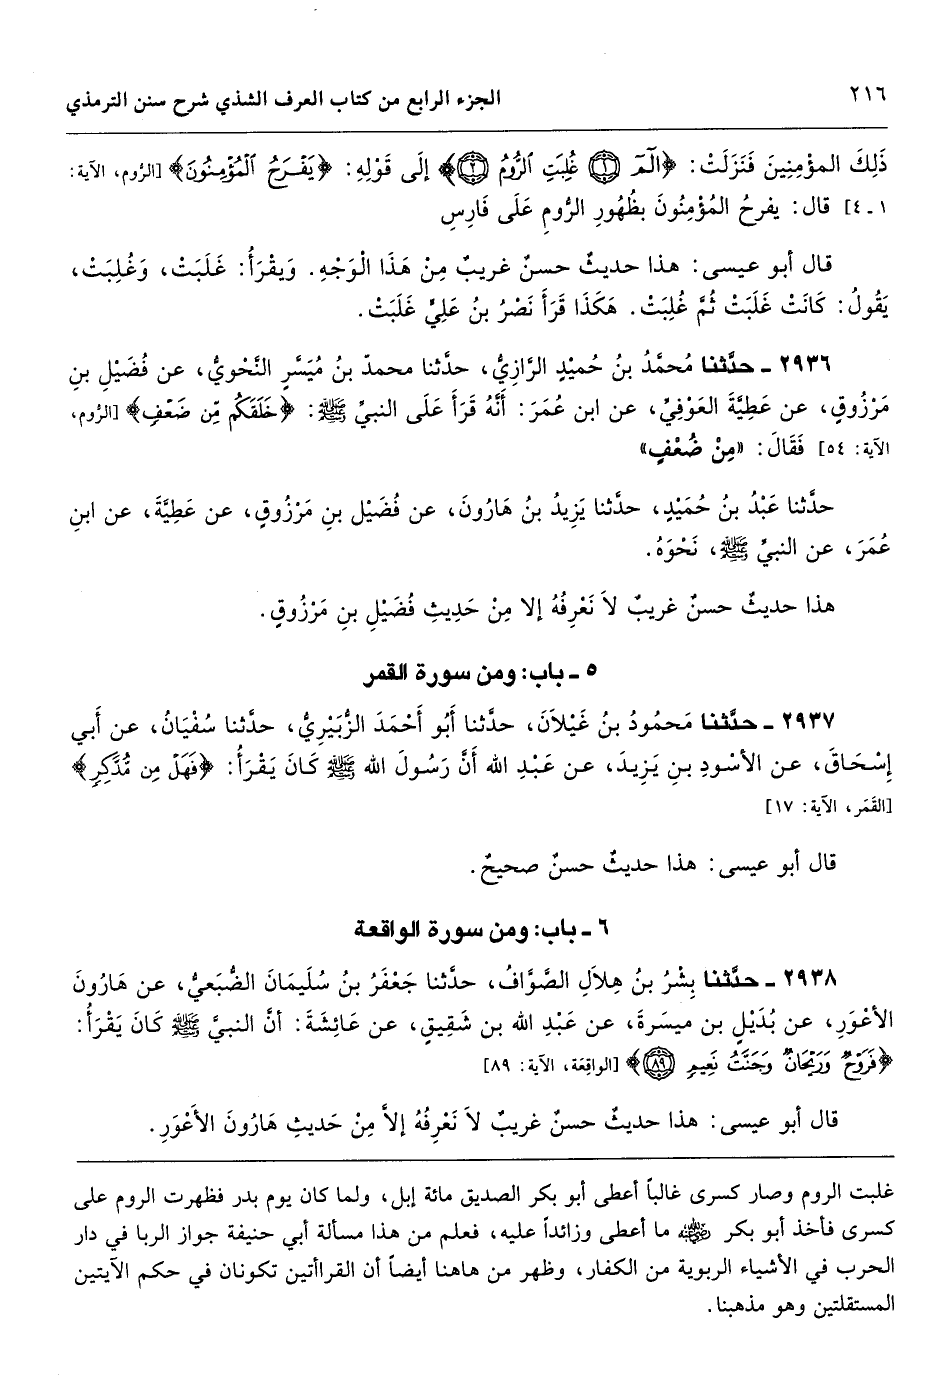 ٢١٦ الجزء الرابع من كتاب العرف الشذي شرح سنن الترمذي
ذَلِكَ المؤمِنِينَ فَنَزَلَتْ: ﴿الٓمٓ ١ غُلِبَتِ ٱلرُّومُ ٢﴾ إلَى قَوْلِهِ: ﴿يَفْرَحُ ٱلْمُؤْمِنُونَ﴾ [الرُّوم، الآية:
١ ـ ٤] قال: يفرحُ المُؤْمِنُونَ بظُهُورِ الرُّومِ عَلَى فَارِسِ
قال أبو عيسى: هذا حديثٌ حسنٌ غريبٌ مِنْ هَذَا الْوَجْهِ. وَيقْرَأُ: غَلَبَتْ، وَغُلِبَتْ،
يَقُولُ: كَانَتْ غَلَبَتْ ثُمَّ غُلِبَتْ. هَكَذَا قَرَأَ نَصْرُ بنُ عَلِيٍّ غَلَبَتْ.
٢٩٣٦ ـ حدَّثنا مُحمَّدُ بنُ حُميْدٍ الرَّازِيُّ، حدَّثنا محمدّ بنُ مُيَسَّرٍ النَّحْوِيُّ، عن فُضَيْلِ بنِ
مَرْزُوقٍ، عن عَطِيَّةَ العَوْفِيِّ، عن ابن عمَرَ: أَنَّهُ قَرَأَ عَلَى النبيِّ ﷺ: ﴿خَلَقَكُم مِّن ضَعْفٍ﴾ [الرُّوم،
الآية: ٥٤] فَقَالَ: «مِنْ ضُعْفٍ»
حدَّثنا عَبْدُ بنُ حُمَيْدٍ، حدَّثنا يَزِيدُ بنُ هَارُونَ، عن فُضَيْل بنِ مَرْزُوقٍ، عن عَطِيَّةَ، عن ابنِ
عُمَرَ، عن النبيِّ ﷺ، نَحْوَهُ.
هذا حديثٌ حسنٌ غريبٌ لاَ نَعْرِفُهُ إلا مِنْ حَدِيثِ فُضَيْلِ بنِ مَرْزُوقٍ.
٥ ـ باب: ومن سورة القمر
٢٩٣٧ ـ حدَّثنا مَحمُودُ بنُ غَيْلاَنَ، حدَّثنا أَبُو أَحْمَدَ الزُّبَيْرِيُّ، حدَّثنا سُفْيَانُ، عن أَبي
إِسْحَاقَ، عن الأسْودِ بنِ يَزِيدَ، عن عَبْدِ الله أَنَّ رَسُولَ الله ﷺ كَانَ يَقْرَأُ: ﴿فَهَلْ مِن مُّدَّكِرٍ﴾
[القَمَر، الآية: ١٧]
قال أبو عيسى: هذا حديثٌ حسنٌ صحيحٌ.
٦ ـ باب: ومن سورة الواقعة
٢٩٣٨ ـ حدَّثنا بِشْرُ بنُ هِلاَلٍ الصَّوَّافُ، حدَّثنا جَعْفَرُ بنُ سُلَيمَانَ الضُّبَعيُّ، عن هَارُونَ
الأعْوَرِ، عن بُدَيْلِ بن ميسَرةَ، عن عَبْدِ الله بن شَقِيقٍ، عن عَائِشَةَ: أنَّ النبيَّ ﷺ كَانَ يَقْرَأُ:
﴿فَرَوْحٌ وَرَيْحَانٌ وَجَنَّتُ نَعِيمٍ ٨٩﴾ [الواقِعَة، الآية: ٨٩]
قال أبو عيسى: هذا حديثٌ حسنٌ غريبٌ لاَ نَعْرِفُهُ إلاَّ مِنْ حَديثِ هَارُونَ الأَعْوَرِ.
غلبت الروم وصار كسرى غالباً أعطى أبو بكر الصديق مائة إبل، ولما كان يوم بدر فظهرت الروم على
كسرى فأخذ أبو بكر رضي الله عنه ما أعطى وزائداً عليه، فعلم من هذا مسألة أبي حنيفة جواز الربا في دار
الحرب في الأشياء الربوية من الكفار، وظهر من هاهنا أيضاً أن القراأتين تكونان في حكم الآيتين
المستقلتين وهو مذهبنا.